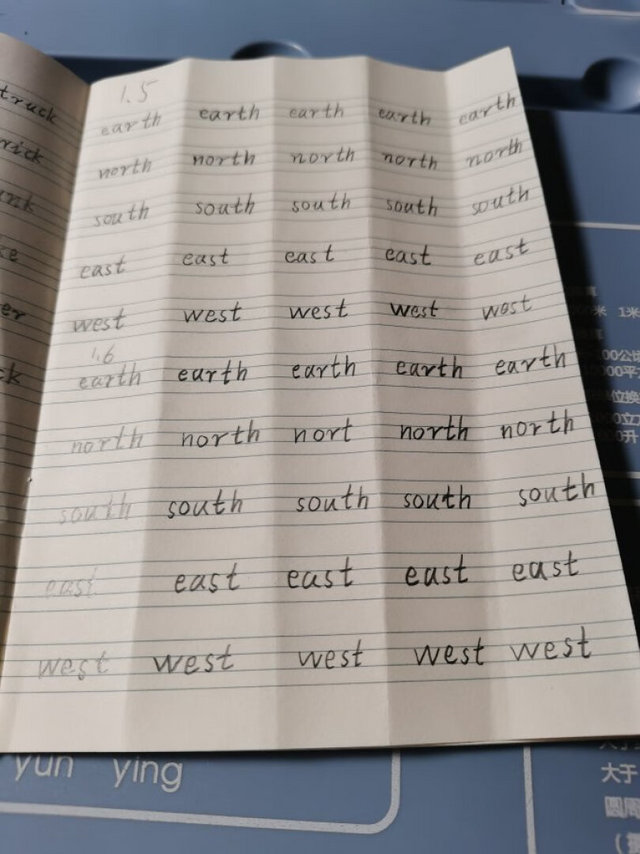 1.5
earth earth earth earth earth
north north north north north
south south south south south
east east east east east
west west west west west
1.6
earth earth earth earth earth
north north nort north north
south south south south south
east east east east east
west west west west west
truck
yun ying
1米
大于